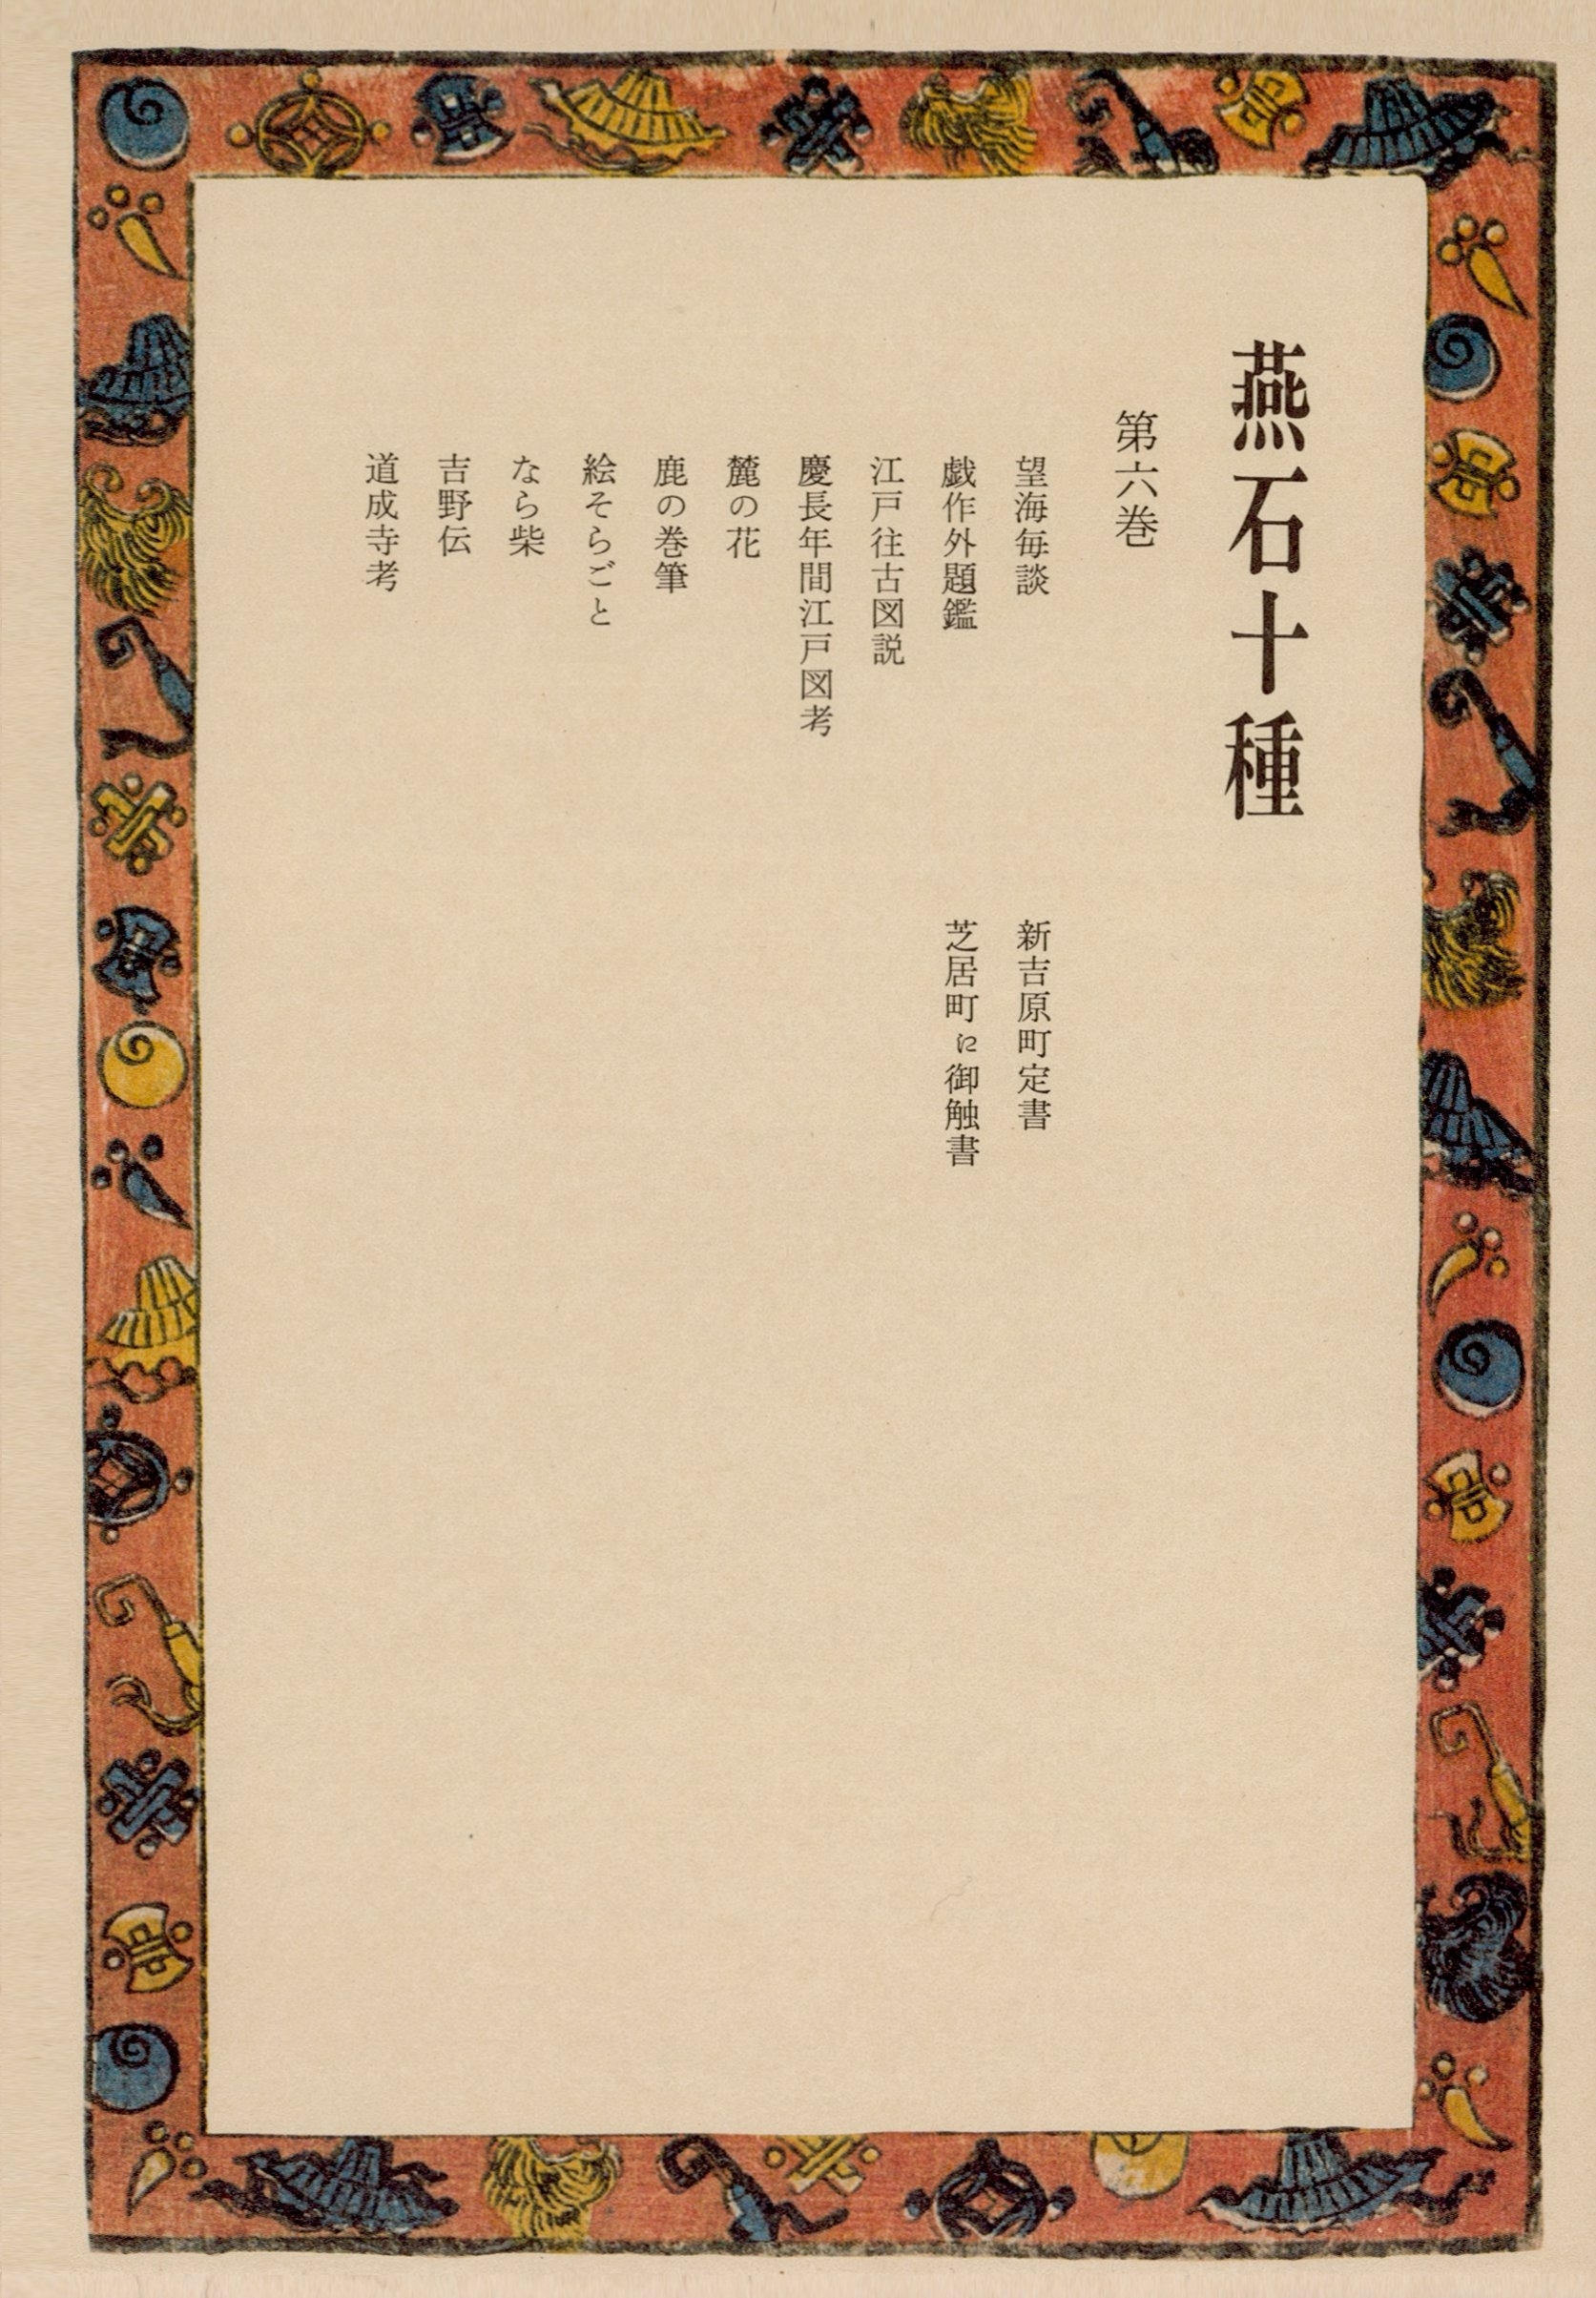 燕石十種
第六巻
望海毎談
戯作外題鑑
江戸往古図説
慶長年間江戸図考
麓の花
鹿の巻筆
絵そらごと
なら柴
吉野伝
道成寺考
新吉原町定書
芝居町に御触書